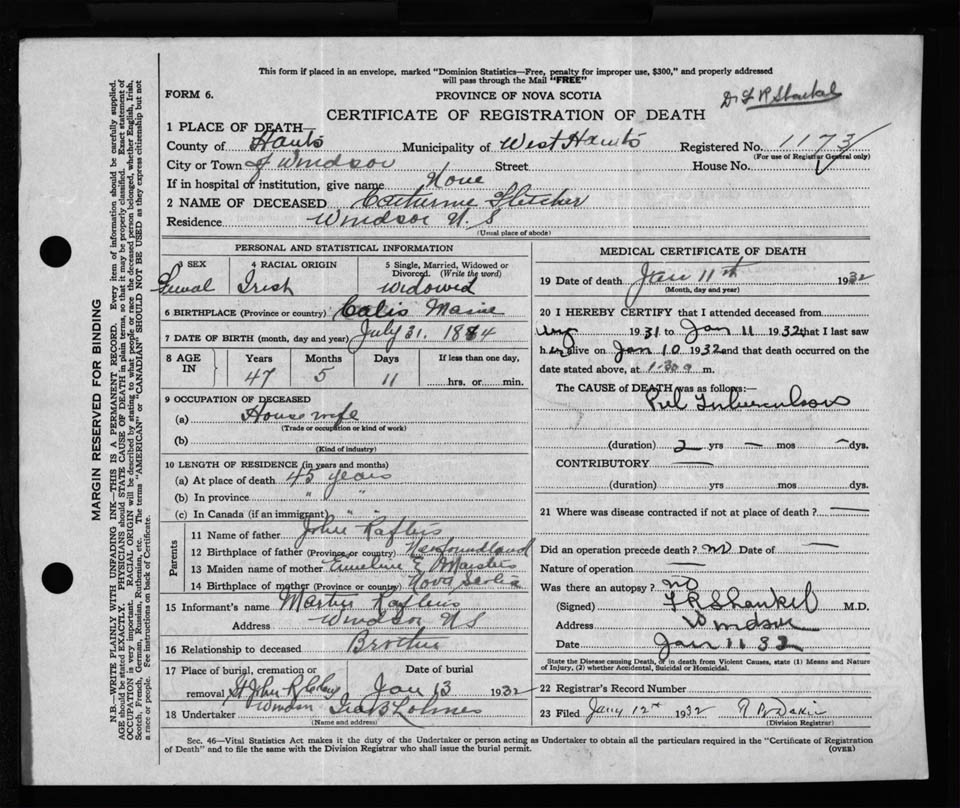 This form if placed in an envelope, marked "Dominion Statistics—Free, penalty for improper use, $300," and properly addressed
will pass through the Mail "FREE"
FORM 6.
PROVINCE OF NOVA SCOTIA
Dr F R Shankel
CERTIFICATE OF REGISTRATION OF DEATH
1 PLACE OF DEATH—
County of Hants Municipality of West Hants Registered No. 1173
(For use of Registrar General only)
City or Town of Windsor Street House No.
If in hospital or institution, give name None
2 NAME OF DECEASED Catherine Fletcher
Residence Windsor N. S
(Usual place of abode)
MARGIN RESERVED FOR BINDING
N.B.—WRITE PLAINLY WITH UNFADING INK—THIS IS A PERMANENT RECORD. Every item of information should be carefully supplied.
AGE should be stated EXACTLY. PHYSICIANS should STATE CAUSE OF DEATH in plain terms, so that it may be properly classified. Exact statement of
OCCUPATION is very important. RACIAL ORIGIN will be described by stating to what people or race the deceased person belonged, whether English, Irish,
Scotch, French, German, Russian, Ruthenian, etc. The terms "AMERICAN" or "CANADIAN" SHOULD NOT BE USED as they express citizenship but not
a race or people. See instructions on back of Certificate.
PERSONAL AND STATISTICAL INFORMATION
3 SEX 4 RACIAL ORIGIN 5 Single, Married, Widowed or
Divorced. (Write the word)
Irish Widowed
6 BIRTHPLACE (Province or country) Calis Maine
7 DATE OF BIRTH (month, day and year) July 31, 1884
8 AGE IN Years Months Days If less than one day,
47 5 11 hrs. or min.
9 OCCUPATION OF DECEASED
(a) House wife
(Trade or occupation or kind of work)
(b)
(Kind of industry)
10 LENGTH OF RESIDENCE (in years and months)
(a) At place of death 45 years
(b) In province " "
(c) In Canada (if an immigrant) " "
Parents
11 Name of father John
12 Birthplace of father (Province or country) Newfoundland
13 Maiden name of mother Emeline E
14 Birthplace of mother (Province or country) Nova Scotia
15 Informant's name Martin
Address Windsor NS
16 Relationship to deceased Brother
17 Place of burial, cremation or Date of burial
removal St John Windsor Jan 13 1932
18 Undertaker
(Name and address)
MEDICAL CERTIFICATE OF DEATH
19 Date of death Jan 11th 1932
(Month, day and year)
20 I HEREBY CERTIFY that I attended deceased from
Aug 1931 to Jan 11 1932 that I last saw
her alive on Jan 10 1932 and that death occurred on the
date stated above, at 1.30 a m.
The CAUSE of DEATH was as follows:—
Pul Tuberculosis
(duration) 2 yrs — mos — dys.
CONTRIBUTORY —
(duration) yrs. mos. dys.
21 Where was disease contracted if not at place of death? —
Did an operation precede death? no Date of —
Nature of operation —
Was there an autopsy? no
(Signed) F R Shankel M.D.
Address Windsor
Date Jan 11 32
State the Disease causing Death, or in death from Violent Causes, state (1) Means and Nature
of Injury, (2) whether Accidental, Suicidal or Homicidal.
22 Registrar's Record Number
23 Filed Jany 12th 1932
(Division Registrar)
Sec. 46—Vital Statistics Act makes it the duty of the Undertaker or person acting as Undertaker to obtain all the particulars required in the "Certificate of Registration
of Death" and to file the same with the Division Registrar who shall issue the burial permit.
(OVER)